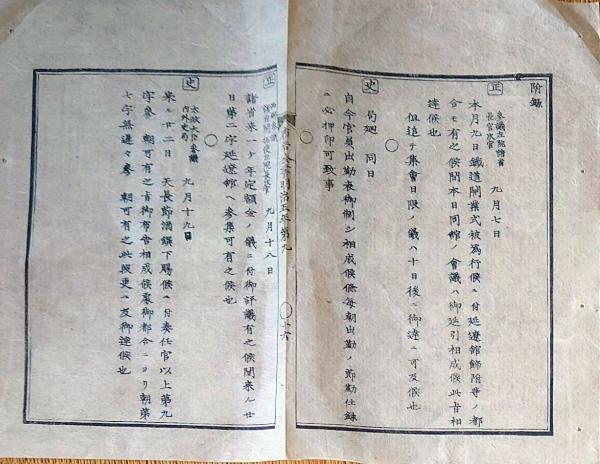 附録
正
参議左院諸省
長官次官
九月七日
本月九日鐵道開業式被為行候ニ付延遼館飾附等ノ都
合モ有之候間本日同館ノ會議ハ御延引相成候此旨相
達候也
但追テ集會日限ノ儀ハ十日後ニ御達ニ可及候也
史
局廻 同日
自今官員出勤表御制シ相成候條每朝出勤ノ節勤仕録
ニ必押印可致事
明治五年 第九
正
九月十八日
諸省来一ヶ年定額金ノ儀ニ付御評議有之候間来ル廿
日第二字延遼館ヘ參集可有之候也
史
太政大臣參議
內外史局
九月十九日
來ル廿二日 天長節酒饌下賜候ニ付奏任官以上第九
字參 朝可有之旨御布告相成候處御都合ニヨリ朝第
七字無遅々參 朝可有之此段更ニ及御達候也